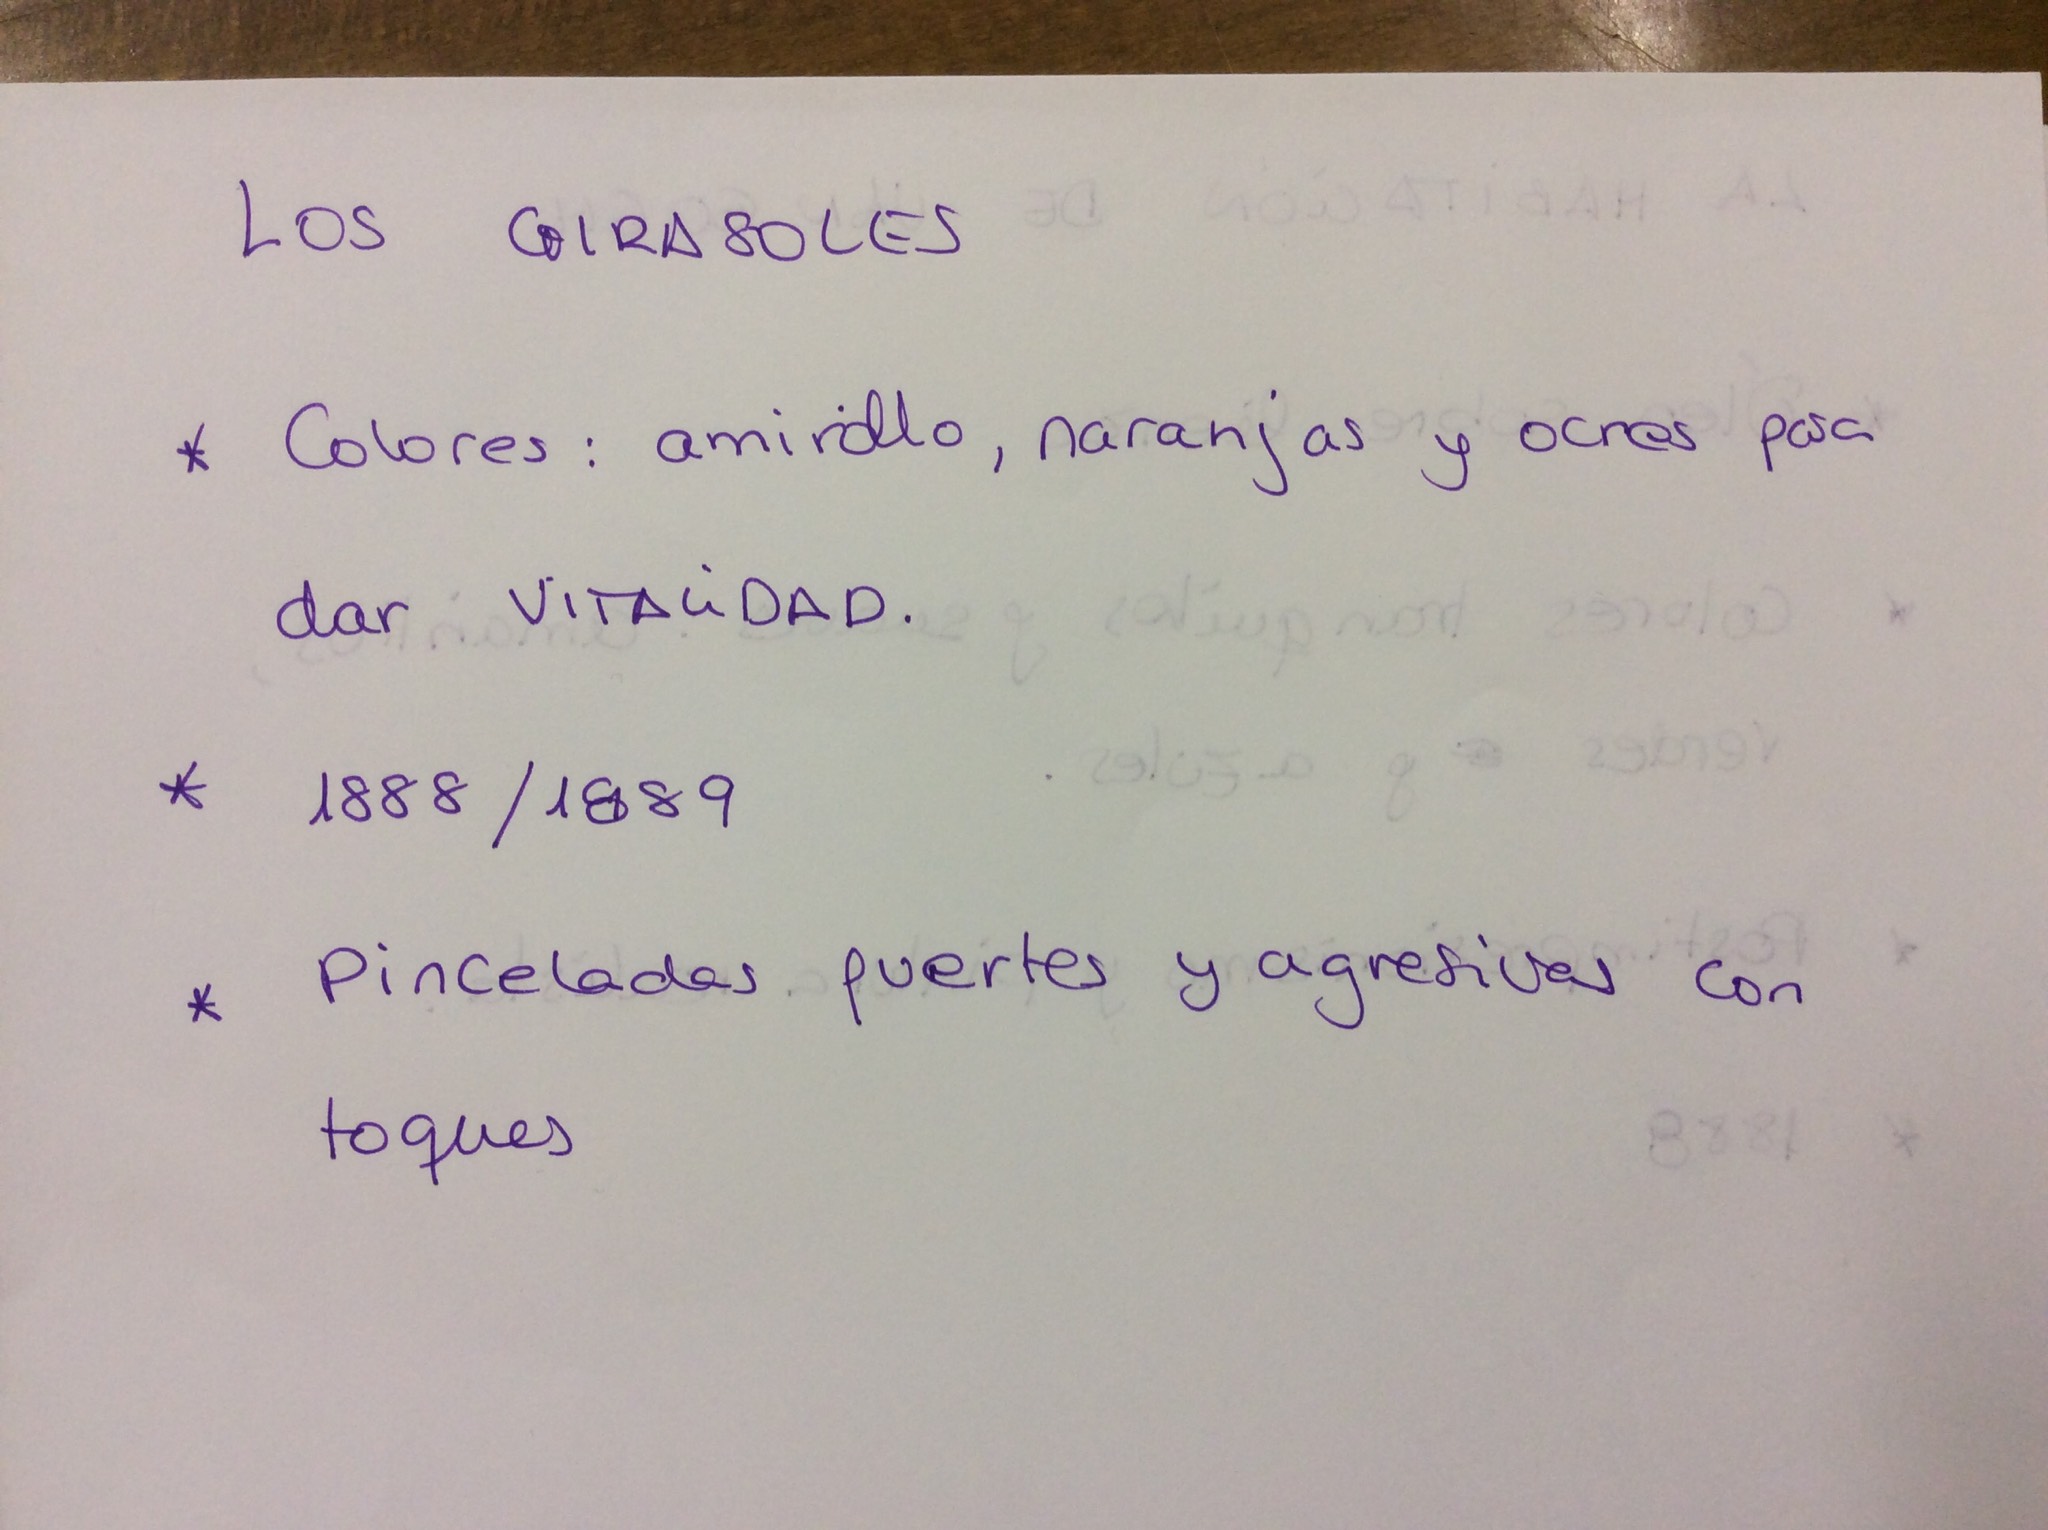 LOS GIRASOLES
* Colores: amirillo, naranjas y ocres para
dar VITALIDAD.
* 1888/1889
* Pinceladas fuertes y agresivas con
toques